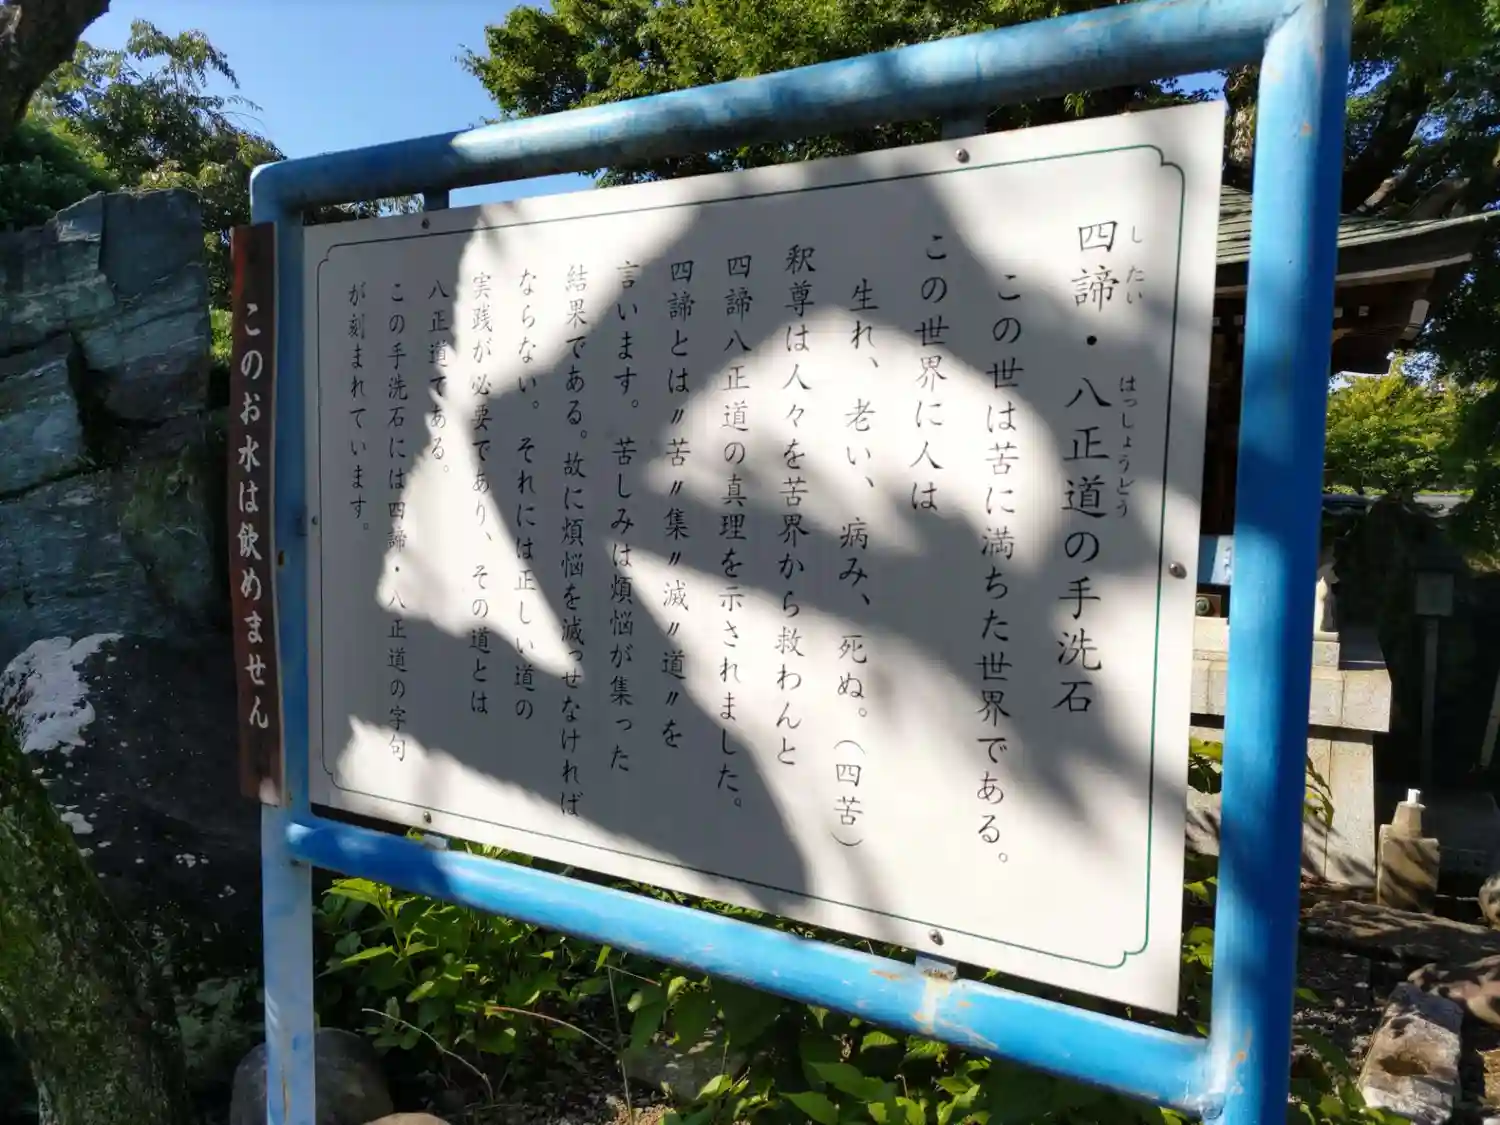 四諦・八正道の手洗石
したい はっしょうどう
この世は苦に満ちた世界である。
この世界に人は
生れ、老い、病み、死ぬ。(四苦)
釈尊は人々を苦界から救わんと
四諦八正道の真理を示されました。
四諦とは〃苦〃集〃滅〃道〃を
言います。苦しみは煩悩が集った
結果である。故に煩悩を滅っせなければ
ならない。それには正しい道の
実践が必要であり、その道とは
八正道である。
この手洗石には四諦・八正道の字句
が刻まれています。
このお水は飲めません